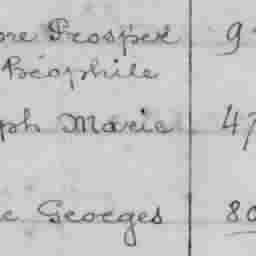 re Prosper 9
Théophile
ph Marie 47
c Georges 80